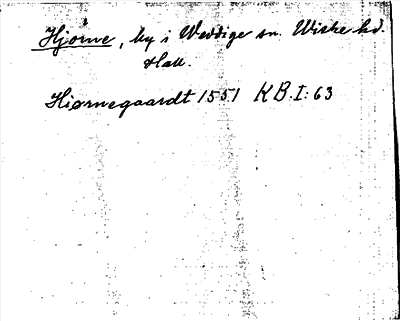 Hjørne,by i Weddige sn. Wiske hd.
Hall.
Hiørnegaardt 1551 KB. I: 63